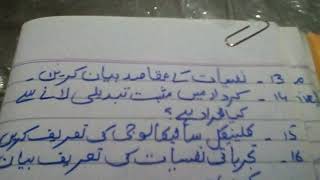 13 - نفسیات کے مقاصد بیان کریں۔
14 - کردار میں مثبت تبدیلی لانے سے
کیا مراد ہے؟
15 - کلینیکل سائیکالوجی کی تعریف کریں
16 - تجرباتی نفسیات کی تعریف بیان